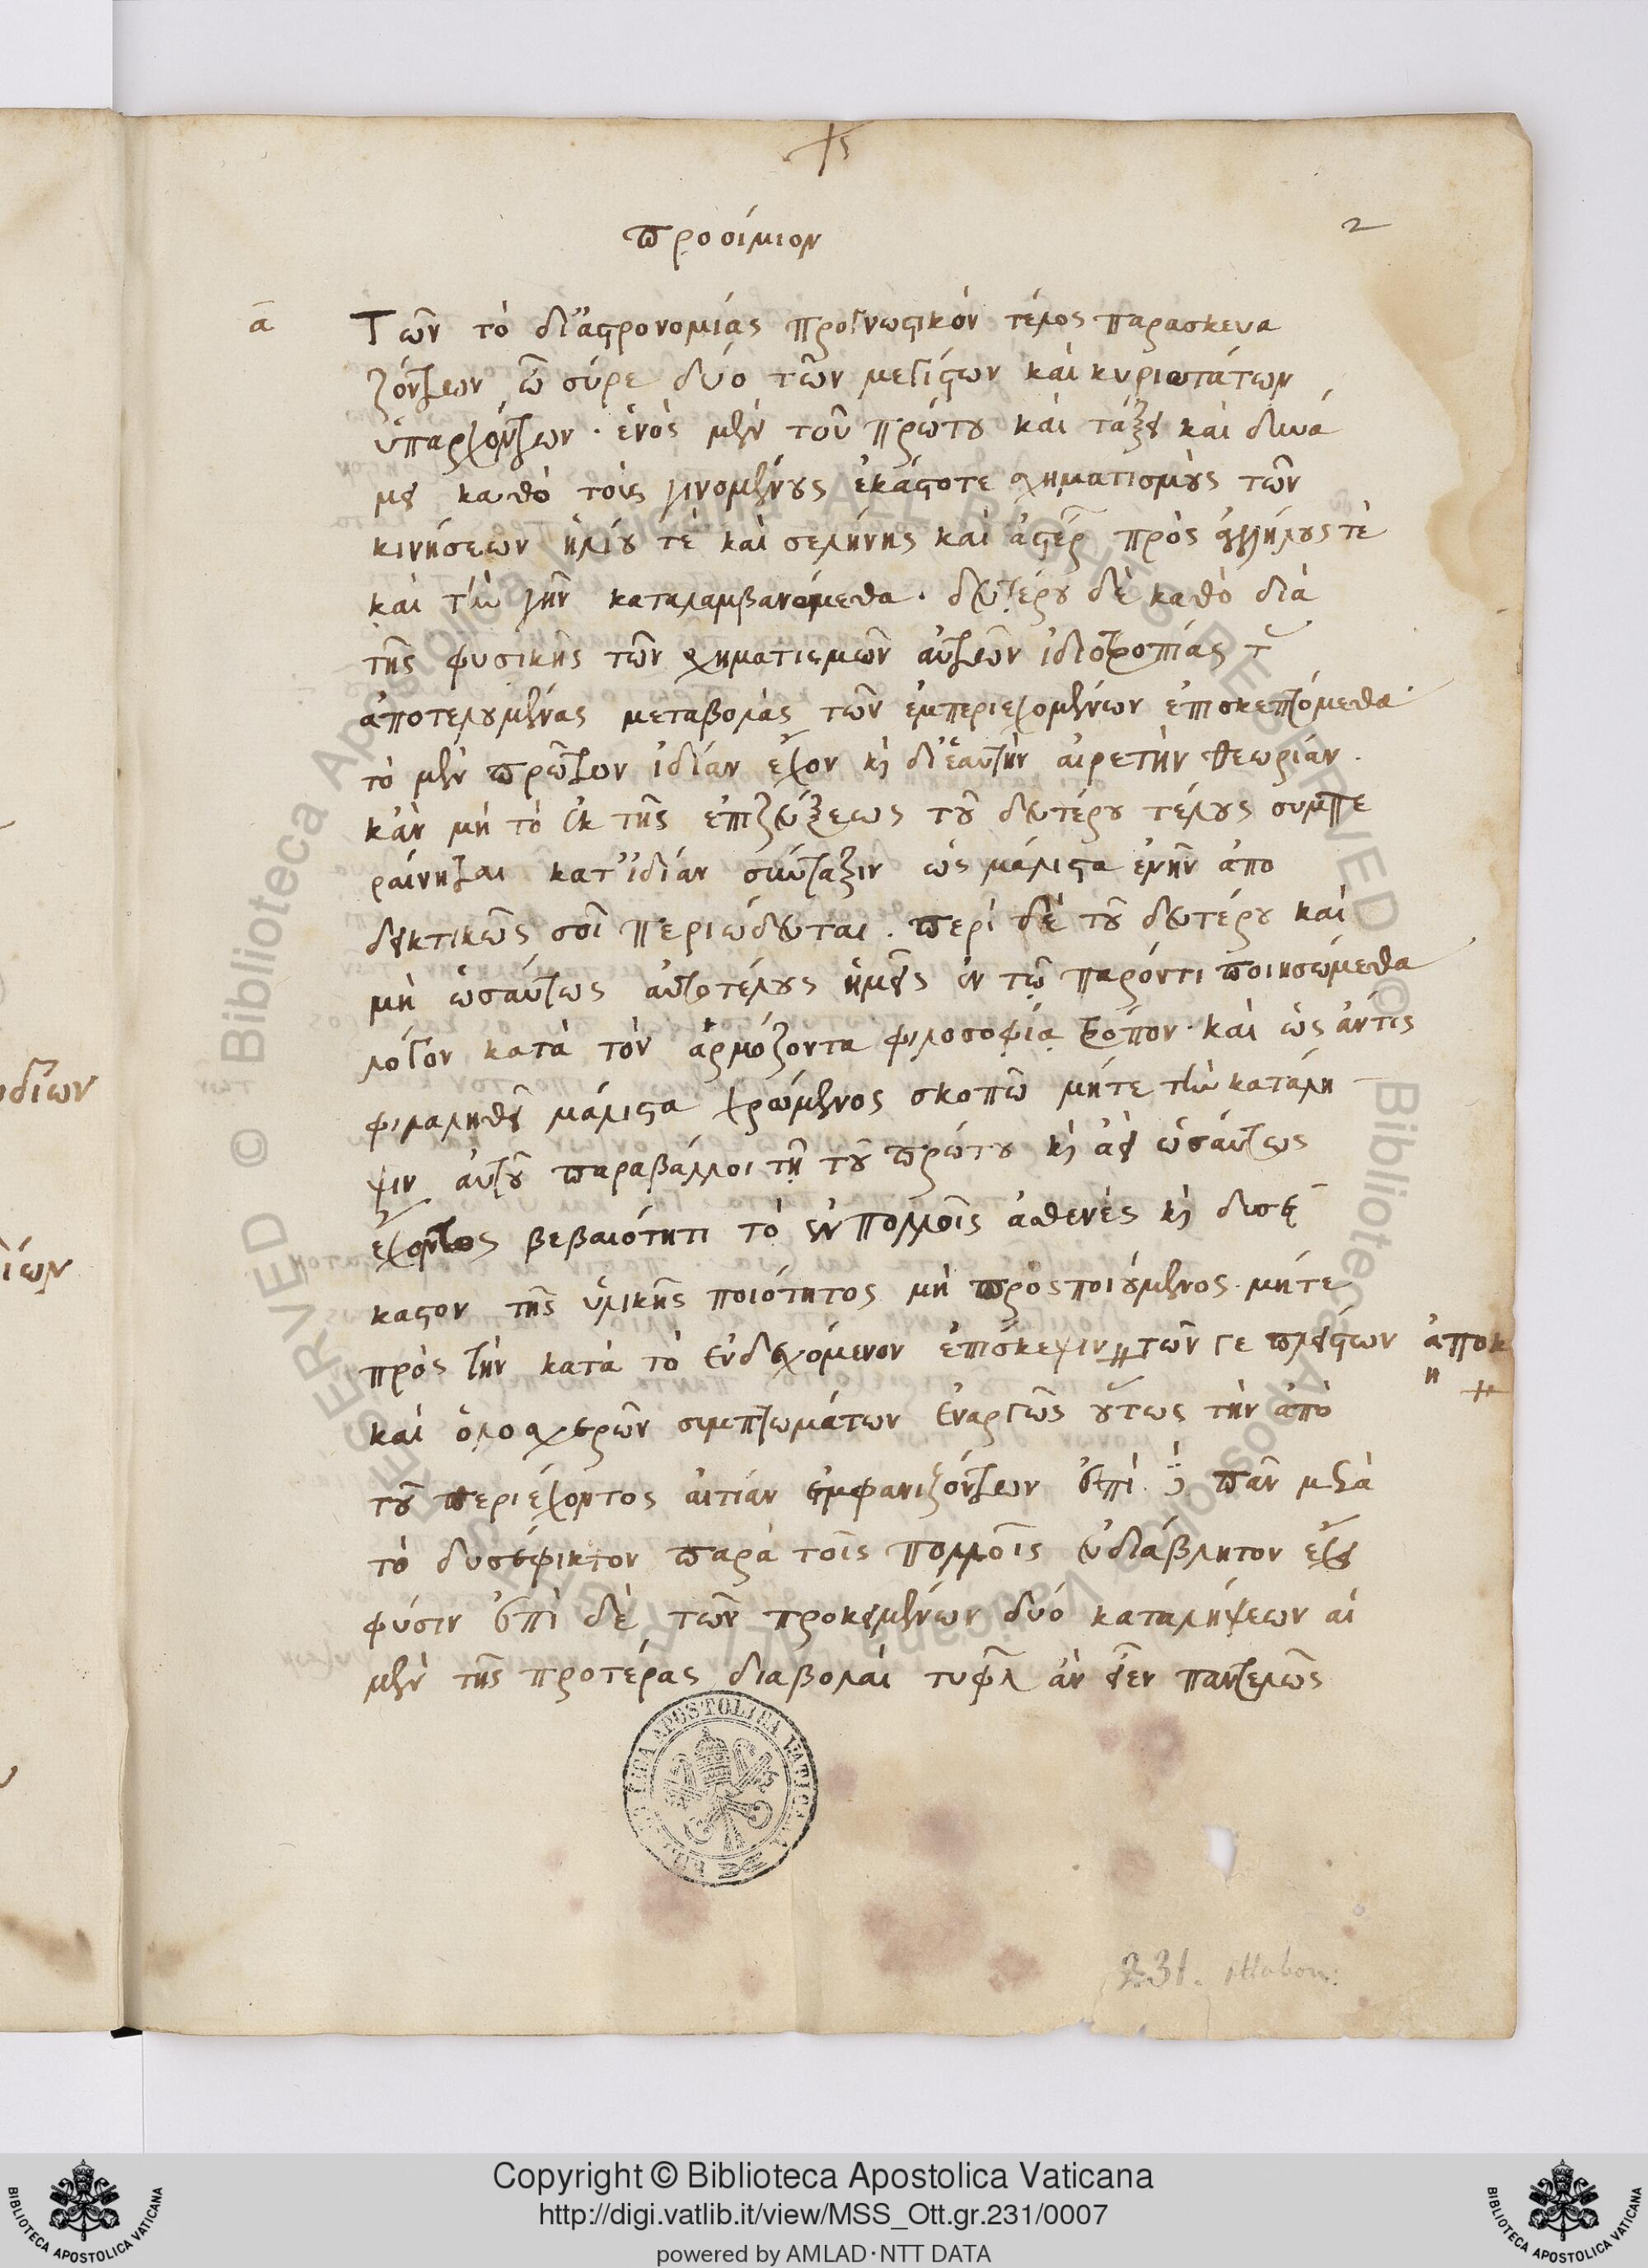 προοίμιον
2
α Τῶν τὸ δι' ἀστρονομίας προγνωστικὸν τέλος παρασκευα
ζόντων ὦ σύρε δύο τῶν μεγίστων καὶ κυριωτάτων
ὑπαρχόντων · ἑνὸς μὲν τοῦ πρώτου καὶ τάξει καὶ δυνά
μει καθὸ τοὺς γινομένους ἑκάστοτε σχηματισμοὺς τῶν
κινήσεων ἡλίου τὲ καὶ σελήνης καὶ ἀστέρ πρὸς ἀλλήλους τὲ
καὶ τὴν γῆν καταλαμβανόμεθα · δευτέρου δὲ καθὸ διὰ
τῆς φυσικῆς τῶν σχηματισμῶν αὐτῶν ἰδιοτροπίας τ
ἀποτελουμένας μεταβολὰς τῶν ἐμπεριεχομένων ἐπισκεπτόμεθα ·
τὸ μὲν πρῶτον ἰδίαν ἔχον καὶ δι' ἑαυτὴν αἱρετὴν θεωρίαν .
κἂν μὴ τὸ ἐκ τῆς ἐπιζεύξεως τοῦ δευτέρου τέλους συμπε
ραίνηται κατ' ἰδίαν σύνταξιν ὡς μάλιστα ἐνῆν ἀπο
δεικτικῶς σοῖ περιώδευται . περὶ δὲ τοῦ δευτέρου καὶ
μὴ ὡσαύτως αὐτοτέλους ἡμεῖς ἐν τῷ παρόντι ποιησώμεθα
λόγον κατὰ τὸν ἁρμόζοντα φιλοσοφίᾳ τρόπον · καὶ ὡς ἄν τις
φιλαληθεῖ μάλιστα χρώμενος σκοπῷ μήτε τὴν κατάλη
ψιν αὐτοῦ παραβάλλοι τῇ τοῦ πρώτου καὶ ἀεὶ ὡσαύτως
ἔχοντος βεβαιότητι τὸ ἐν πολλοῖς ἀσθενὲς καὶ δυσεί
καστον τῆς ὑλικῆς ποιότητος μὴ προσποιούμενος · μήτε
πρὸς τὴν κατὰ τὸ ἐνδεχόμενον ἐπίσκεψιν τῶν γε πλείστων ἀποκ
η
καὶ ὁλοσχερῶν συμπτωμάτων ἐναργῶς οὕτως τὴν ἀπὸ
τοῦ περιέχοντος αἰτίαν ἐμφανιζόντων ἐπὶ πᾶν μετὰ
τὸ δυσέφικτον παρὰ τοῖς πολλοῖς εὐδιάβλητον ἔχει
φύσιν ἐπὶ δὲ τῶν προκειμένων δύο καταλήψεων αἱ
μὲν τῆς προτέρας διαβολαὶ τυφλ ἂν εἶεν παντελῶς
BIBLIOTECA APOSTOLICA VATICANA
231.
© Biblioteca Apostolica Vaticana ALL RIGHTS RESERVED
Copyright © Biblioteca Apostolica Vaticana
http://digi.vatlib.it/view/MSS_Ott.gr.231/0007
powered by AMLAD·NTT DATA
BIBLIOTECA APOSTOLICA VATICANA
BIBLIOTECA APOSTOLICA VATICANA